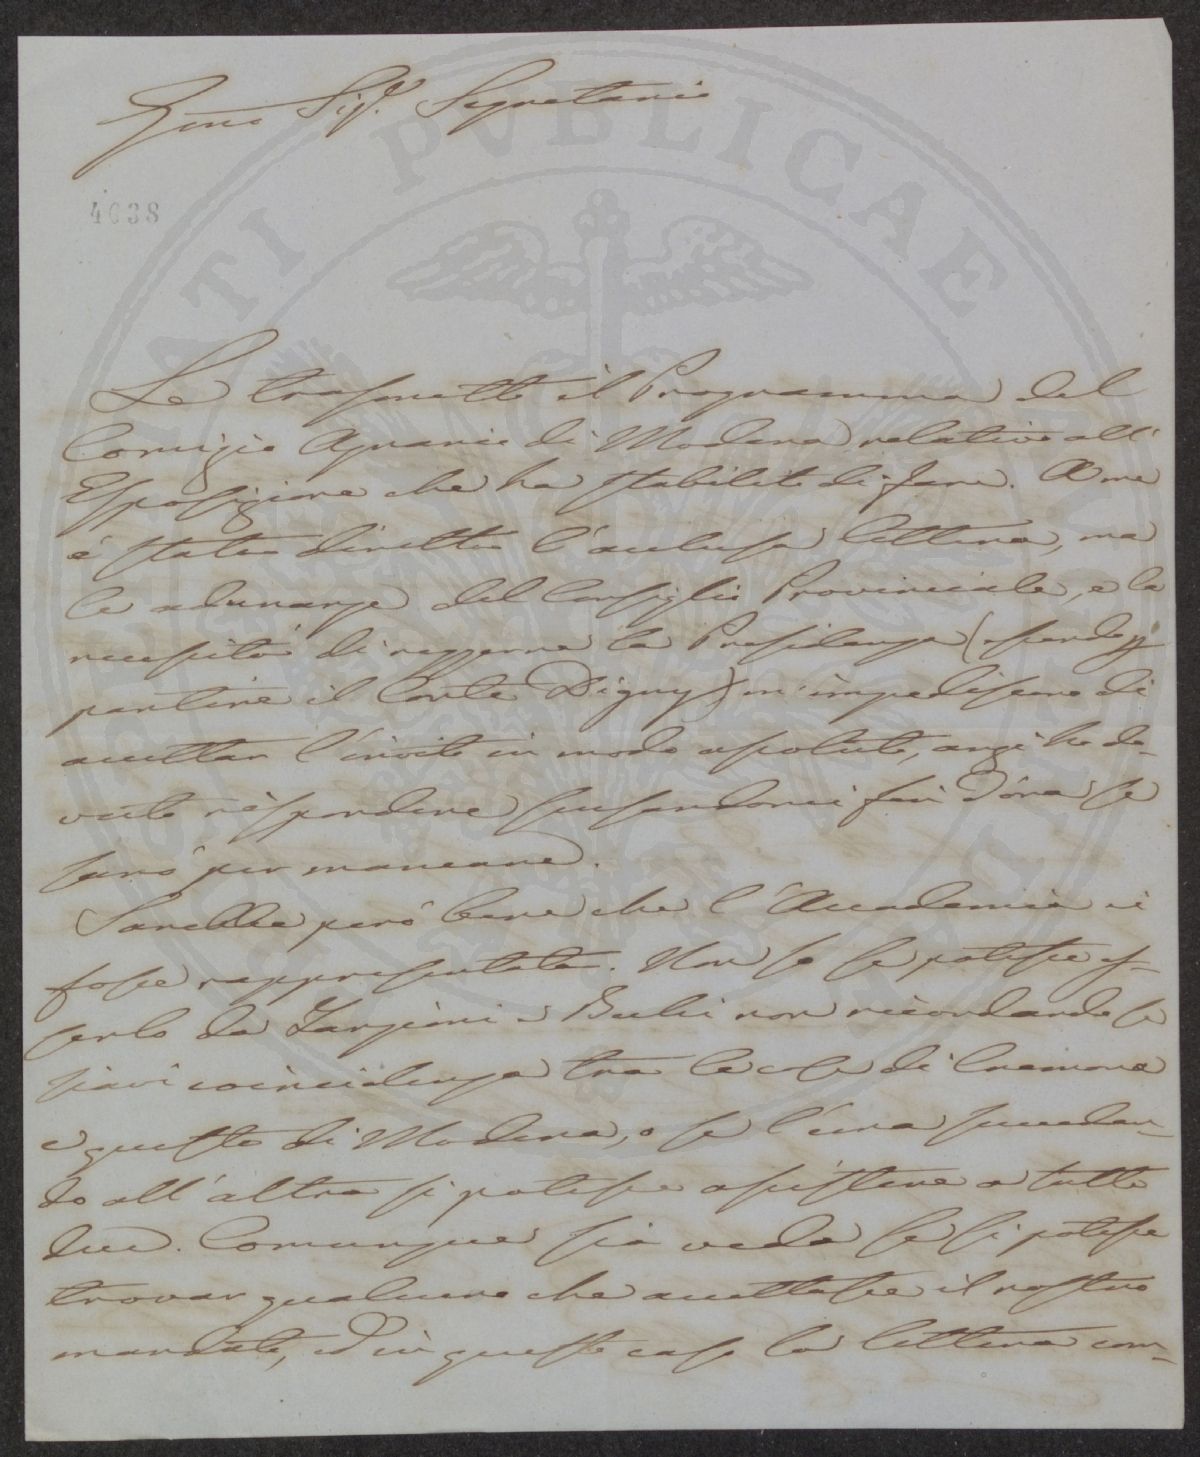 Sig.r Segretario
4038
Le trasmetto il Programma del
Comizio Agrario di Modena relativo all'
Esposizione che ha stabilito di fare. A me
é stata diretta l'acclusa lettera, ma
le adunanze del Consiglio Provinciale, e la
necessitá di reggerne la Presidenza (essendo
partire il Conte Digny) m'impediscono di
accettar l'invito in modo assoluto, anzi ho do-
vuto rispondere scusandomi fin d'ora se
saró per mancare.
Sarebbe peró bene che l'Accademia ci
fosse rappresentata. Non so se potesse es-
serlo da Targioni e Bechi non ricordando se
siavi coincidenza tra le cose di Cremona
e queste di Modena, o se l'una succeden-
do all'altra si potesse assistere a tutte
due. Comunque sia veda se si potesse
trovar qualcuno che accettasse il nostro
mandato, ed in questo caso la lettera com-
PVBLICAE